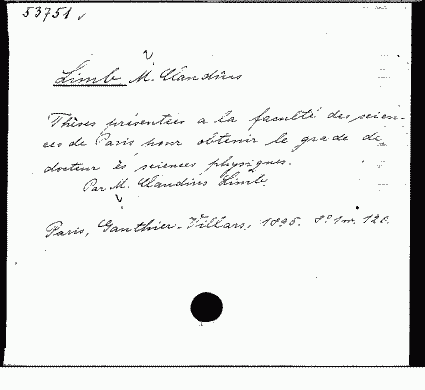 53751
Limb M. Claudius
Thèses présentées a la faculté des scien-
ces de Paris pour obtenir le grade de
docteur ès sciences physiques.
Par M. Claudius Limb.
Paris, Gauthier-Villars, 1895. 8° 1 vr. 120.